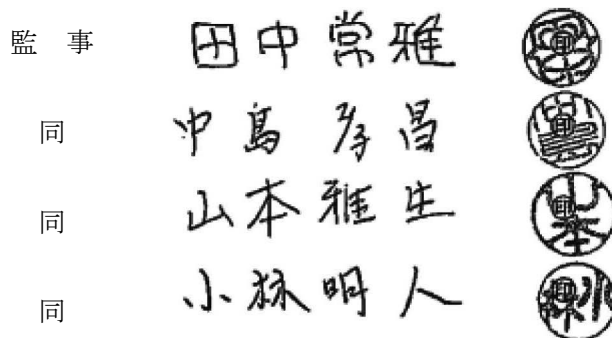 監 事 田中常雅 印
同 中島 好昌 印
同 山本雅生 印
同 小林明人 印